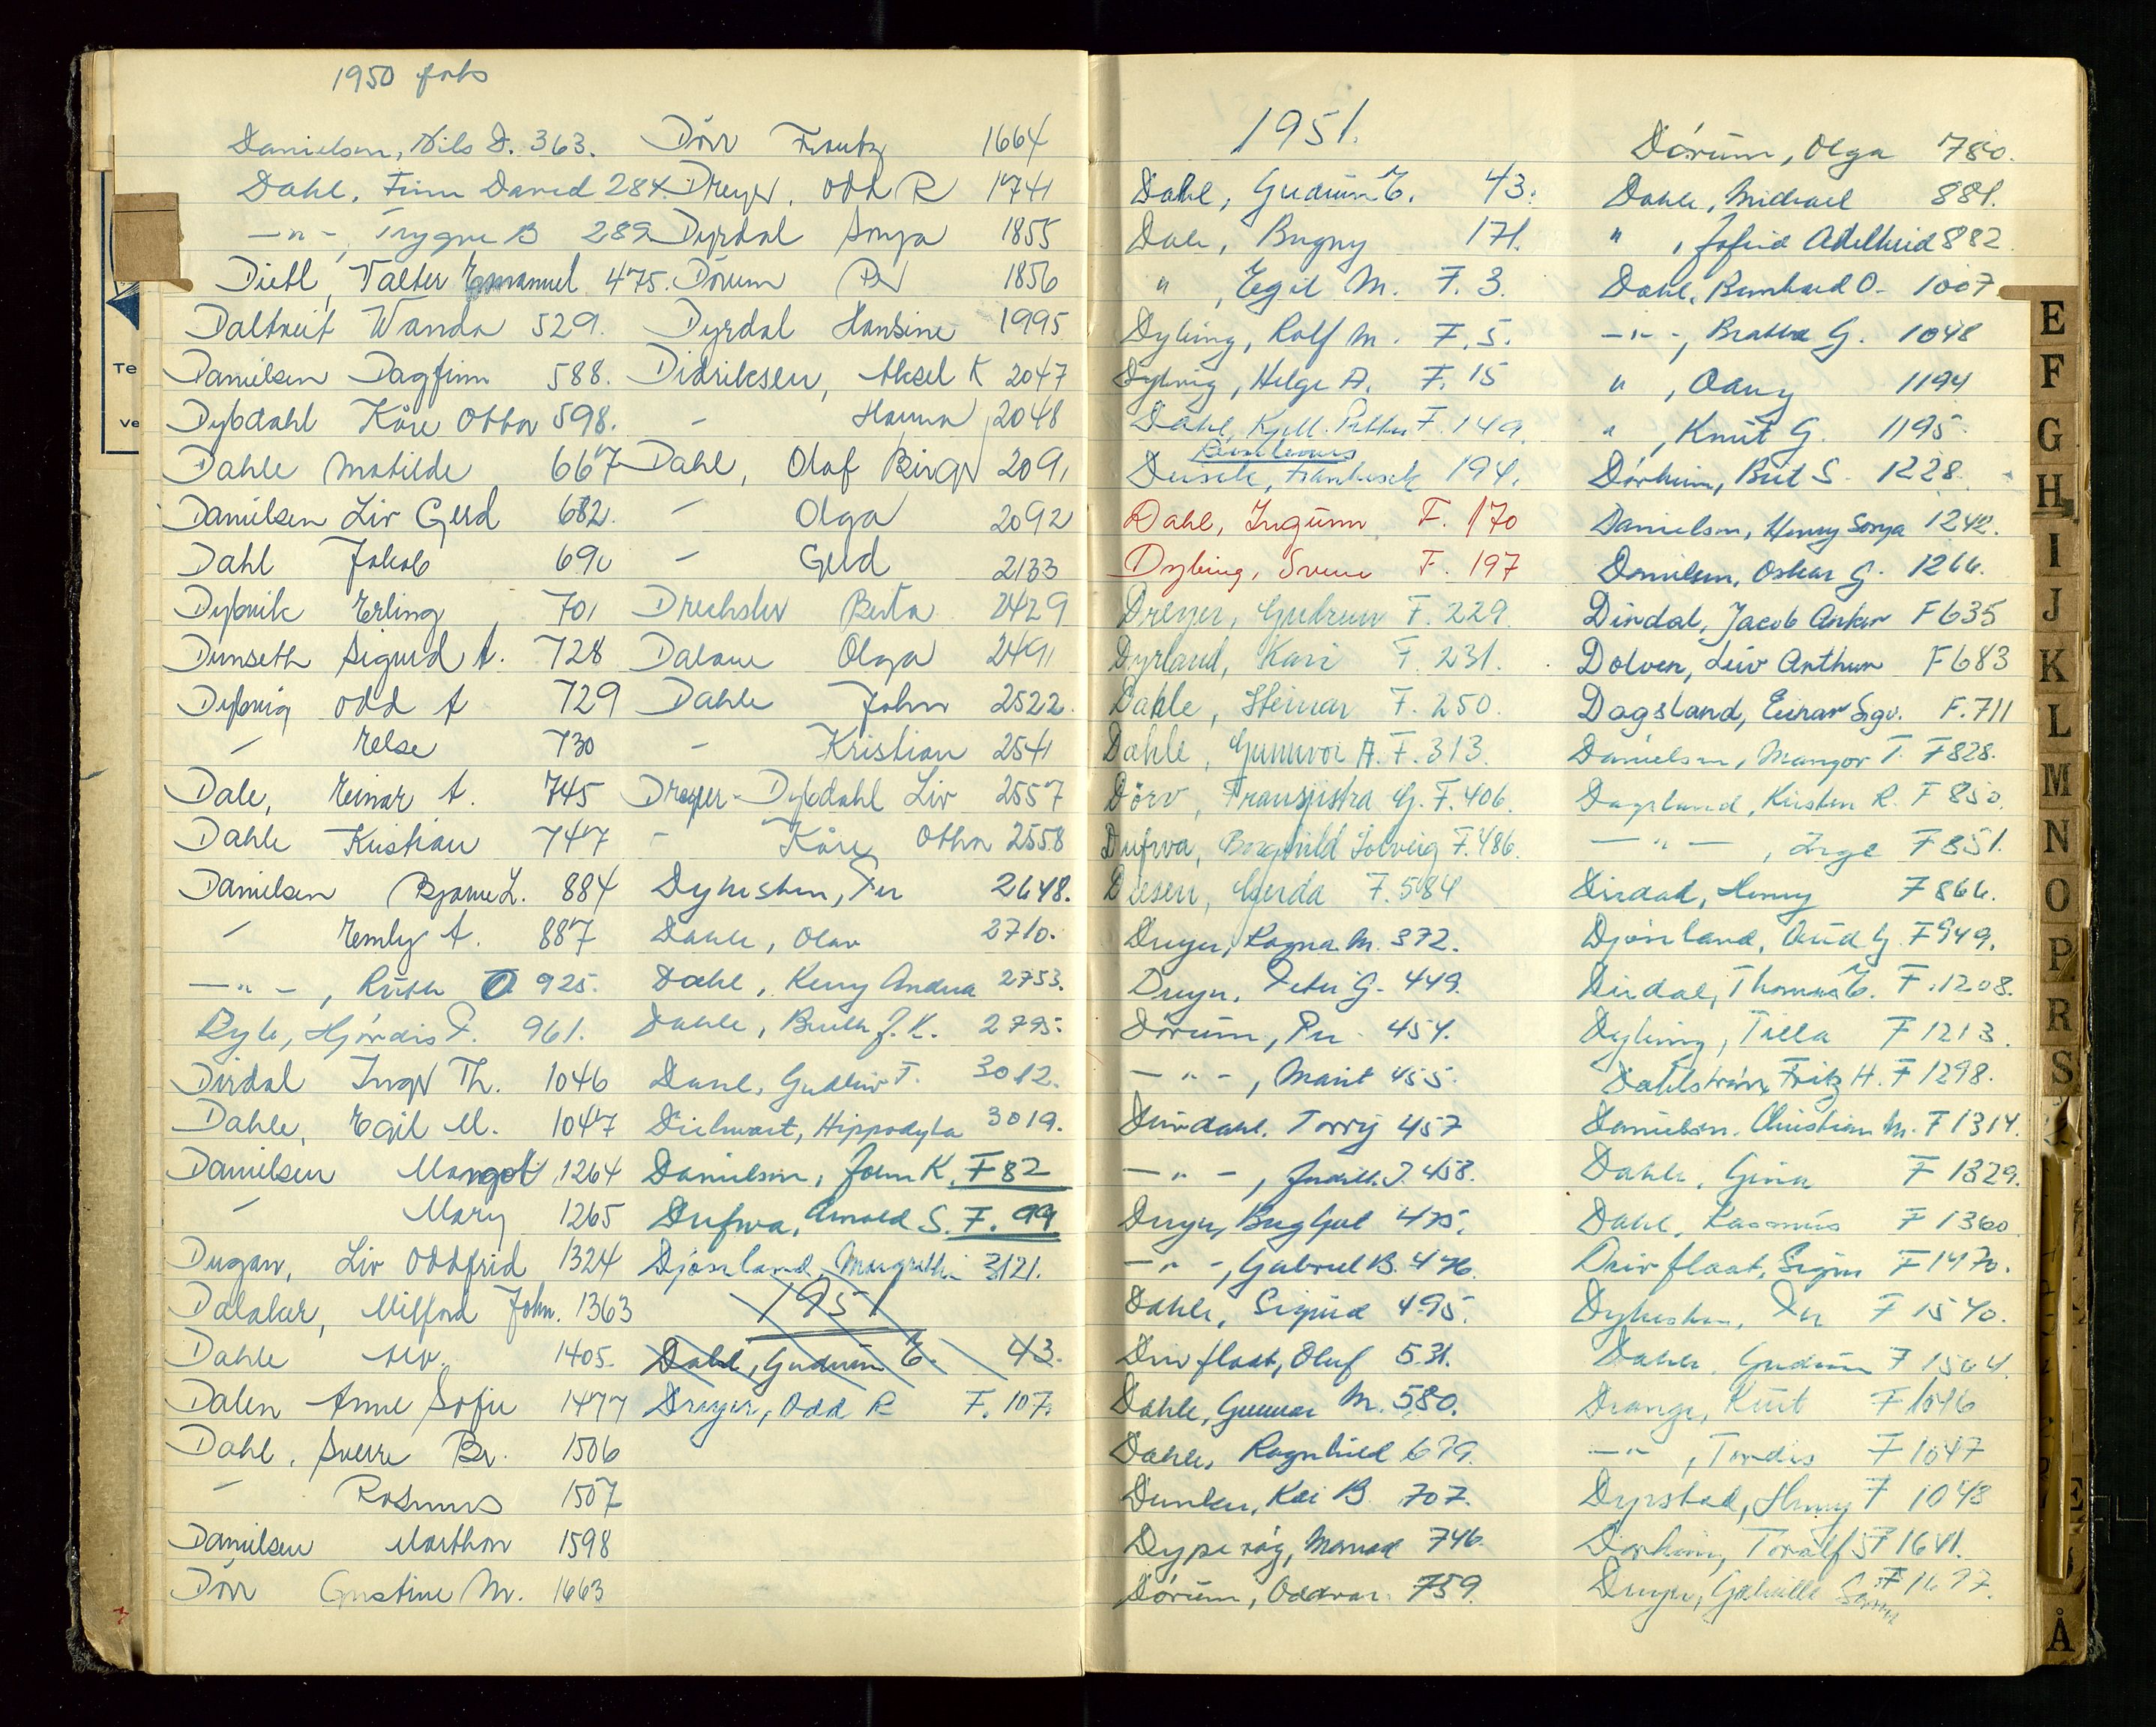 1950 forts
Danielsen, Nils D. 363.
Dahl, Finn David 284.
—"—, Trygve B 289
Dietl, Valter Emanuel 475.
Wanda 529.
Danielsen Dagfinn 588.
Dybdahl Kåre Othar 598.
Dahle Matilde 667
Danielsen Liv Gerd 682.
Dahl Jakob
Dybvik Erling 701
Dunseth Sigurd A. 728
Dybvig Odd A 729
" Else 730
Dale, Einar A. 745
Dahle Kristian 747
Danielsen Bjarne L. 884
" Emly A. 887
—"—, Ruth O 925.
Hjördis F. 961.
Dirdal Inger Th. 1046
Dahle, Egil M. 1047
Danielsen Margot 1264
" Mary 1265
Dugan, Liv Oddfrid 1324
Dalaker, Milford John. 1363
Dahle 1405.
Dalen Anne Sofie 1477
Dahl, Sverre Br. 1506
" Rasmus 1507
Danielsen Marthon 1598
Dörr Gustine M. 1663
Dörr Frantz 1664
Dreyer, Odd R 1741
Dyrdal Sonja 1855
Dörum Per 1856
Dyrdal Hansine 1995
Didriksen, Aksel K 2047
" Hanna 2048
Dahl, Olaf Birger 2091
" Olga 2092
" Gerd 2133
Drechsler Berta 2429
Olga 2491
Dahle John 2522.
" Kristian 2541
Dreyer-Dybdahl Liv 2557
" Kåre Othar 2558
Dykesteen, Per 2648.
Dahle, Olav 2710.
Dahl, Kenny Andrea 2753.
Dahle, Berth J. K. 2795.
Dahl, Gudlaiv T. 3012.
Hippodyta 3019.
Danielsen, John K. F 82
Dufwa, Arnold S. F. 99
Djöseland, Margrethe 3121.
1951
Dahl, Gudrun E. 43.
Dreyer, Odd R F. 107.
1951.
Dahl, Gudrun E. 43.
Dale, Bugny 171.
" , Egil M. F. 3.
Dybing, Rolf M. F. 5.
Dybvig, Helge A. F. 15
Dahl, Kjell Petter F. 149.
194.
Dahl, Ingunn F. 170
Dybing, Svein F. 197
Dreyer, Gudrun F. 229.
Dyrland, Kari F. 231.
Dahle, Steinar F. 250.
Dahle, Gunnvor A. F. 313.
Dörv, G. F. 406.
Dufwa, Borghild Solveig F. 486.
Diesen, Gerda F. 584
Dreyer, Ragna M. 372.
Dreyer, Peter G. 449.
Dörum, Per 454.
—"—, Marit 455.
Dirdahl, Torry 457
—"—, Judith J. 458.
Dreyer, 475.
—"—, Gabriel B. 476.
Dahle, Sigurd 495.
Drivflaat, Oluf 531.
Dahle, Gunnar M. 580.
Dahle, Ragnhild 679.
Dunker, Kai B 707.
Dypevåg, 746.
Dörum, Oddvar 759.
Dörum, Olga 780.
Dahle, Michael 881.
" , Jofrid Adelheid 882
Dahl, Bernhard O. 1007.
—"—, G. 1048
" , Odny 1194
" , Knut G. 1195.
Dörheim, Brit S. 1228.
Danielsen, Henny Sonja 1242.
Danielsen, Oskar G. 1266.
Dirdal, Jacob Anker F 635
Dolven, Leiv Arthur F 683
Dagsland, Einar Sgv. F. 711
Danielsen, Mangor T. F 828.
Dagsland, Kirsten R. F 850.
—"—, Inge F 851.
Dirdal, Henny F 866.
Djösland, Aud G. F 949.
Dirdal, Thomas E. F. 1208.
Dybing, Tilla F 1213.
Dahlström, Fritz H. F 1298.
Danielsen, Christian M. F 1314.
Dahle, Gina F 1329.
Dahl, Rasmus F 1360
Drivflaat, Sigrun F 1470.
Dykesteen, Per F 1540.
Dahle, Gudrun F 1564.
Drange, Knut F 1046
—"—, Tordis F 1047
Dyrstad, Henny F 1048
Dörheim, Toralf S F 1641.
Dreyer, Gabrielle F 1697.
E
F
G
H
I
J
K
L
M
N
O
P
R
S
Å